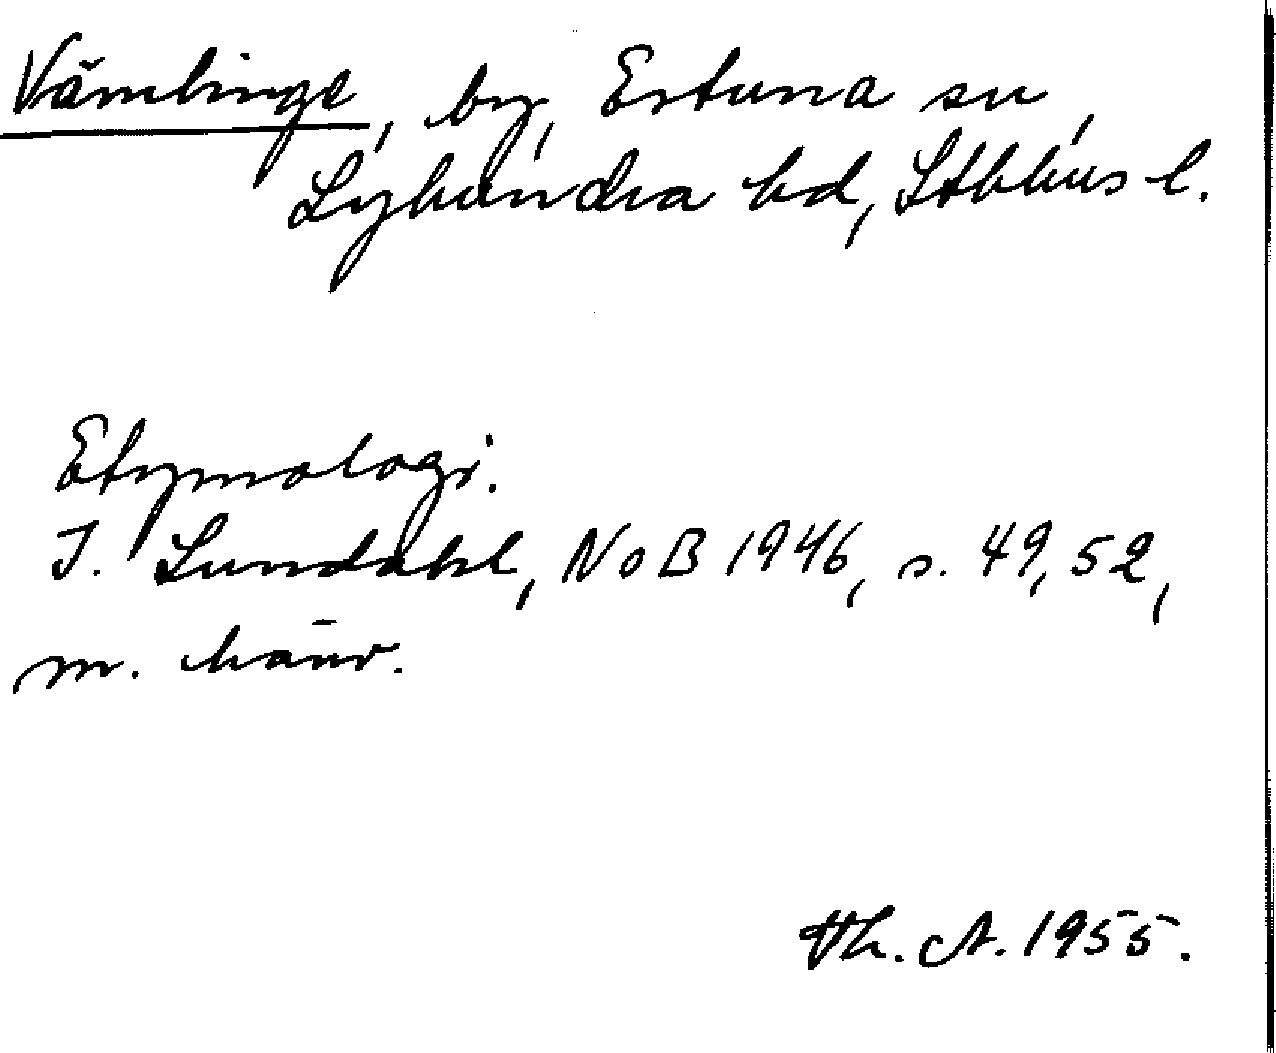 Vämlinge, by, Estuna sn,
Lyhundra hd, Stbhus l.
Etymologi.
I. Lundahl, NoB 1946, s. 49, 52,
m. hänv.
Th. A. 1955.